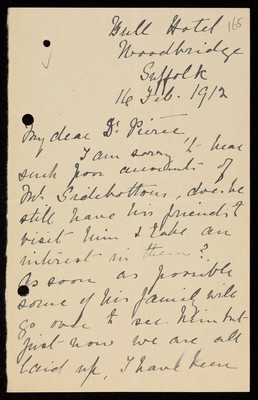 165
Bull Hotel
Woodbridge
Suffolk
14 Feb. 1912
My dear Dr. Pierce
I am sorry to hear
such poor accounts of
Mr. Sidebottom, does he
still have his friends to
visit him & take an
interest in them?
As soon as possible
some of his family will
go over to see him but
just now we are all
laid up, I have been